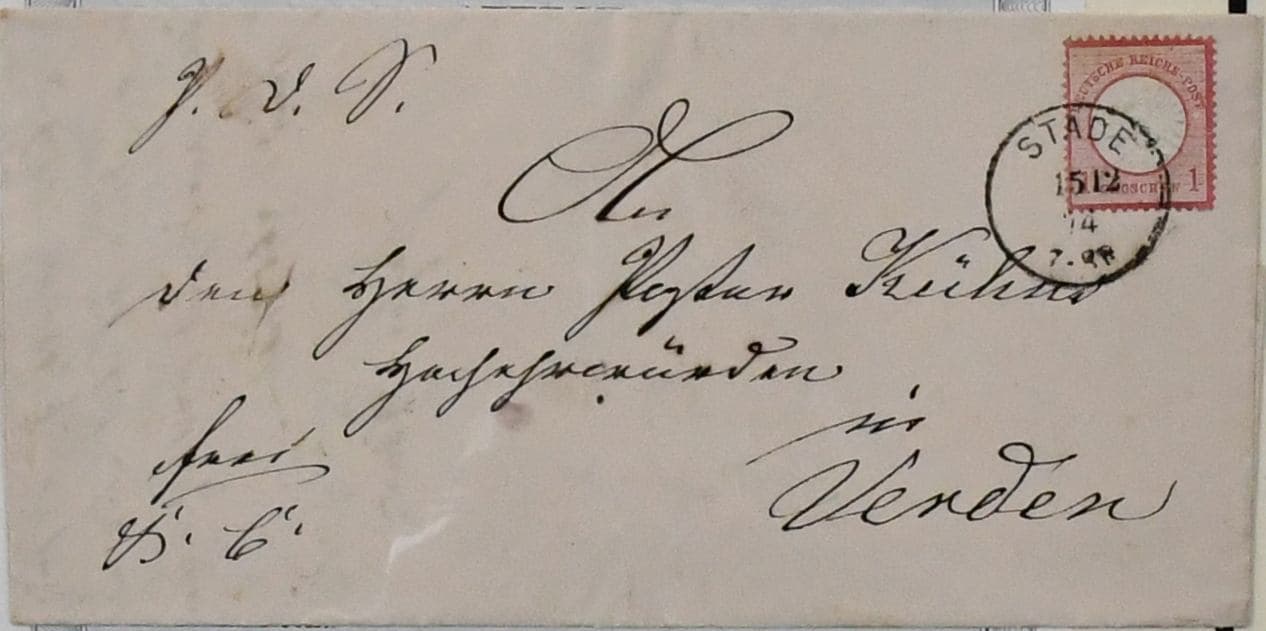 P. D. S.
An
den Herrn Pastor Kühns
Hochehrwürden
in
Verden
frei
DEUTSCHE REICHS-POST
GROSCHEN 1
STADE
15 12
74